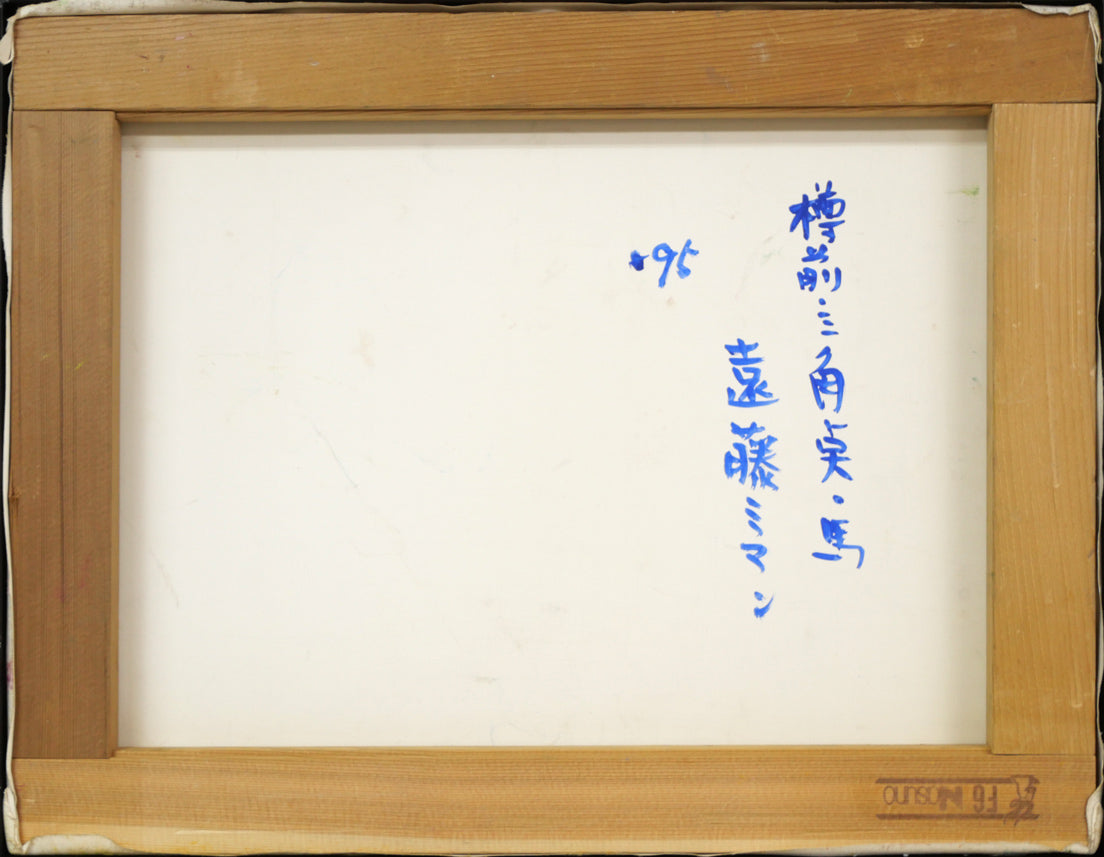 樽前・三角点・馬
遠藤ミマン
'95
F6 Nosuno